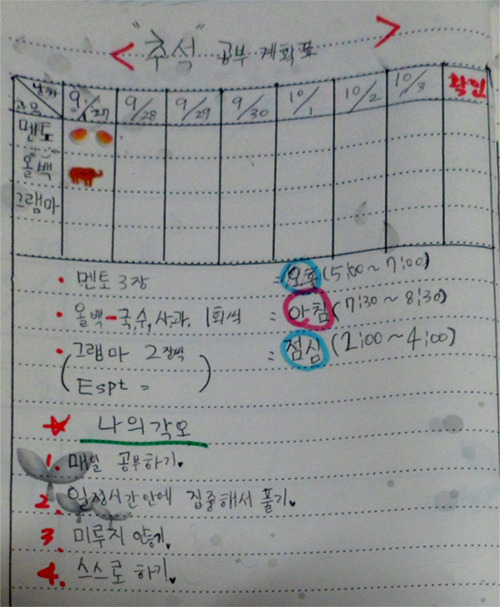 < "추석" 공부 계획표 >
날짜 9/27 9/28 9/29 9/30 10/1 10/2 10/3 확인
멘토
올백
그램마
• 멘토 3장 = 오후 (5:00 ~ 7:00)
• 올백 - 국,수,사과, 1회씩 = 아침 (7:30 ~ 8:30)
• 그램마 2장씩 = 점심 (2:00 ~ 4:00)
( Espt = )
★ 나의 각오
1. 매일 공부하기.
2. 일정시간 안에 집중해서 풀기.
3. 미루지 않기.
4. 스스로 하기.